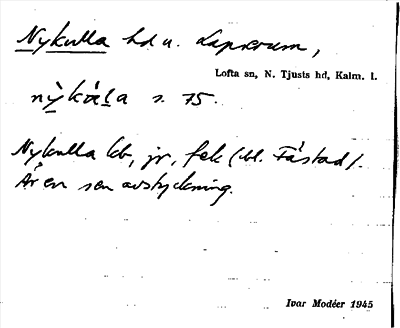 Nykulla hd u. Lapserum,
Lofta sn, N. Tjusts hd, Kalm. l.
nỳkála s. 75.
Nykulla kb, jr, fek (bl. Fåstad).
Är en sen avstyckning.
Ivar Modéer 1945